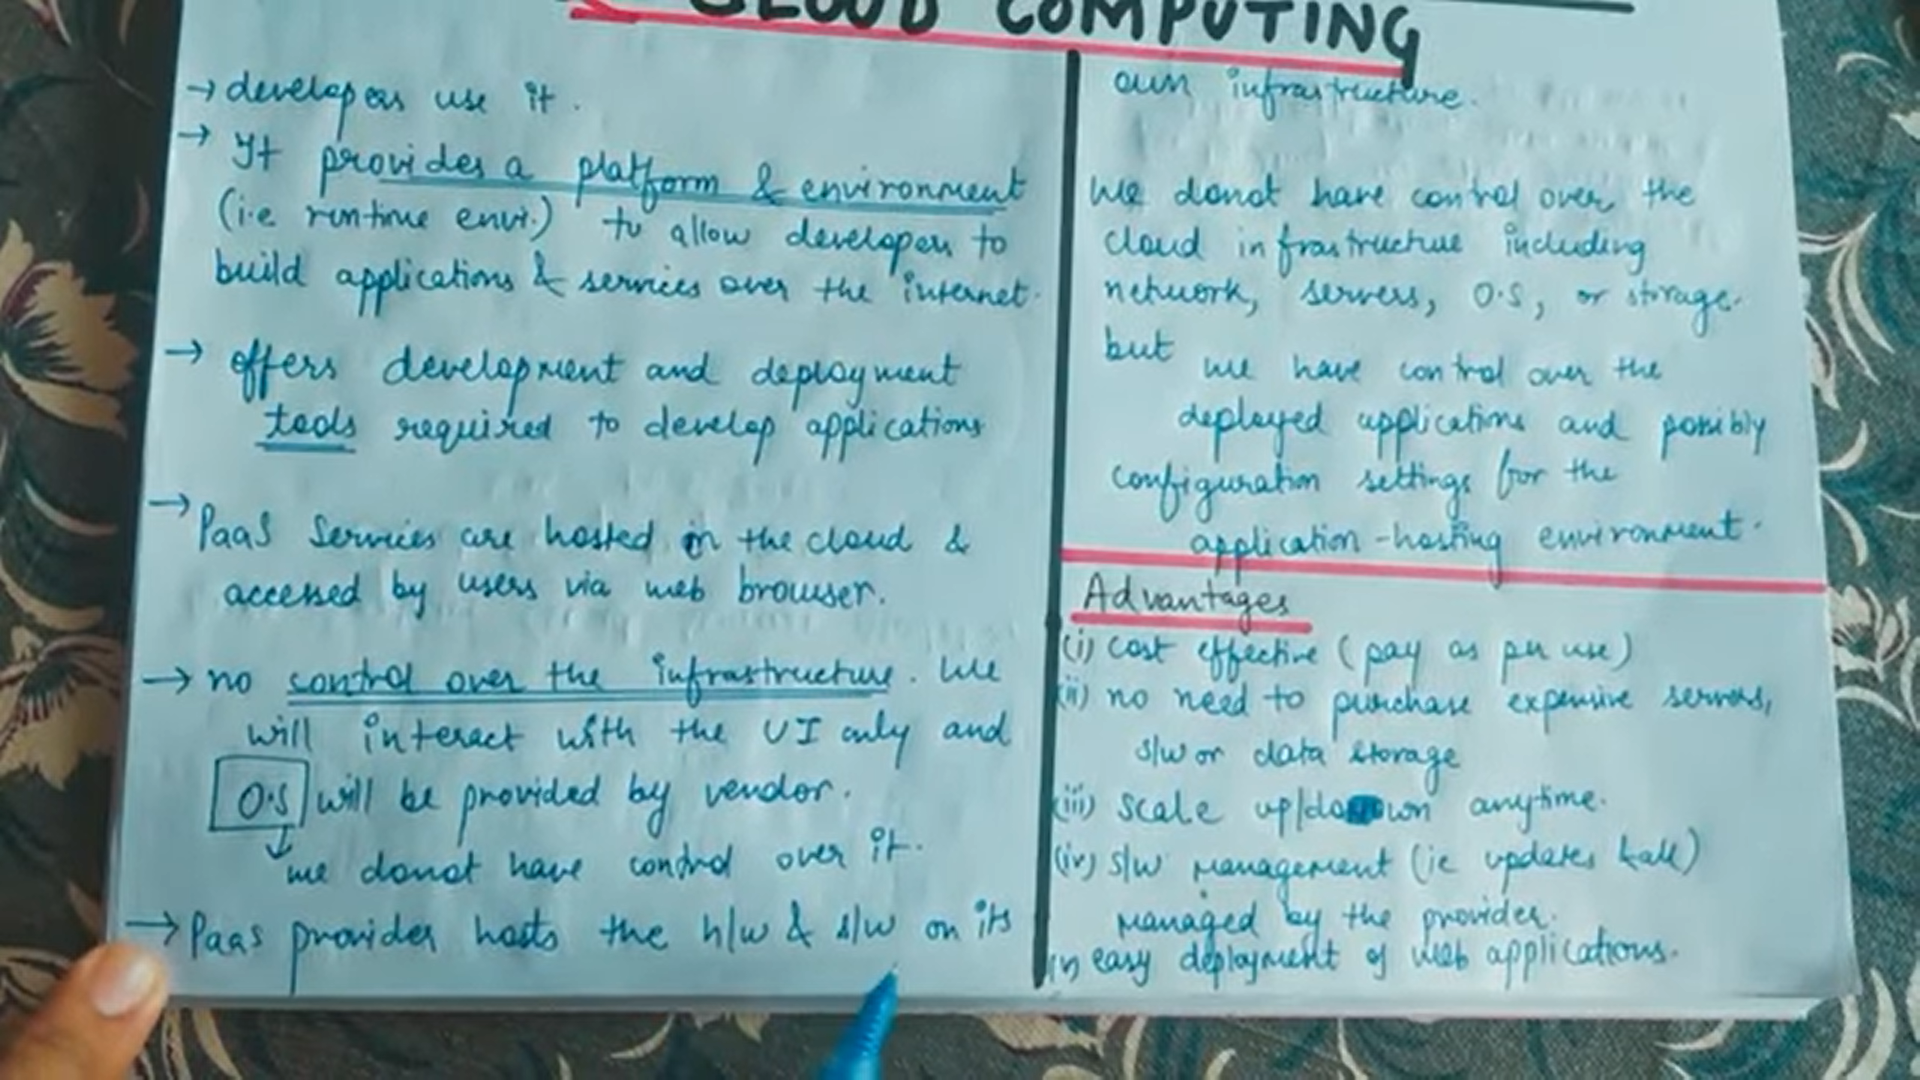 CLOUD COMPUTING
→ developers use it.
→ It provides a platform & environment
(i.e runtime envi.) to allow developers to
build applications & services over the internet.
→ offers development and deployment
tools required to develop applications
→ PaaS Services are hosted in the cloud &
accessed by users via web browser.
→ no control over the infrastructure. We
will interact with the UI only and
O.S will be provided by vendor.
we donot have control over it.
→ PaaS provider hosts the h/w & s/w on its
own infrastructure.
We donot have control over the
cloud infrastructure including
network, servers, O.S, or storage.
but we have control over the
deployed applications and possibly
configuration settings for the
application-hosting environment.
Advantages
(i) cost effective (pay as per use)
(ii) no need to purchase expensive servers,
s/w or data storage
(iii) scale up/down anytime.
(iv) s/w management (ie updates & all)
managed by the provider.
(v) easy deployment of web applications.